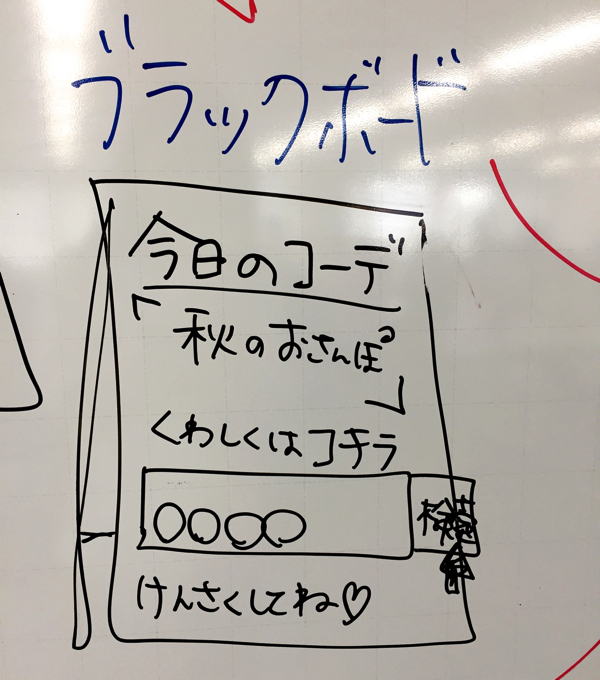 ブラックボード
今日のコーデ
「秋のおさんぽ」
くわしくはコチラ
○○○○ 検索
けんさくしてね♡